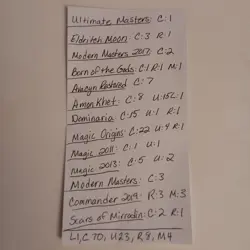 Ultimate Masters: C:1
Eldritch Moon: C:3 R:1
Modern Masters 2017: C:2
Born of the Gods: C:1 R:1 M:1
Avacyn Restored C:7
Amon Khet: C:8 U:15 L:1
Dominaria: C:15 U:1 R:1
Magic Origins: C:22 U:4 R:1
Magic 2011: C:1 U:1
Magic 2013: C:5 U:2
Modern Masters: C:3
Commander 2019: R:3 M:3
Scars of Mirrodin: C:2 R:1
L1, C 70, U23, R 8, M4